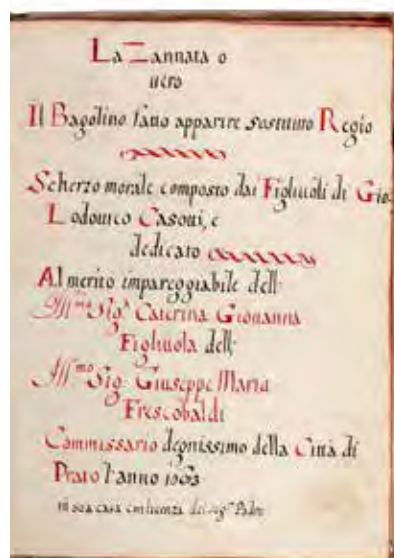 La Zannata o
uero
Il Bagolino fatto apparire sostituto Regio
Scherzo morale composto dai Figliuoli di Gio.
Lodouico Casoni, e
dedicato
Al merito impareggiabile dell
Ill.ma Sig.ra Caterina Giouanna
Figliuola dell
Ill.mo Sig. Giuseppe Maria
Frescobaldi
Commissario degnissimo della Città di
Prato l'anno
in sua casa con licenza del sig.r Padre